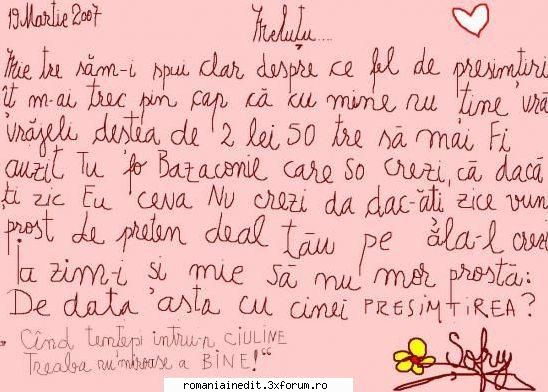 19 Martie 2007
Nelutu....
Mie tre săm-i spui clar despre ce fel de presimtiri
ît m-ai trec pin cap că cu mine nu tine vră
vrăjeli destea de 2 lei 50 tre să mai Fi
auzit Tu Bazaconie care so crezi, că dacă
ti zic Eu ceva Nu crezi da dac-ăti zice vun
prost de preten deal tău pe ăla-l crezi
Ia zim-i si mie să nu mor prostă:
De data asta cu cinei PRESIMTIREA?
Cînd tentepi intru'n CIULINE
Treaba nu'miroase a BINE!"
Sofry
romaniainedit.3xforum.ro